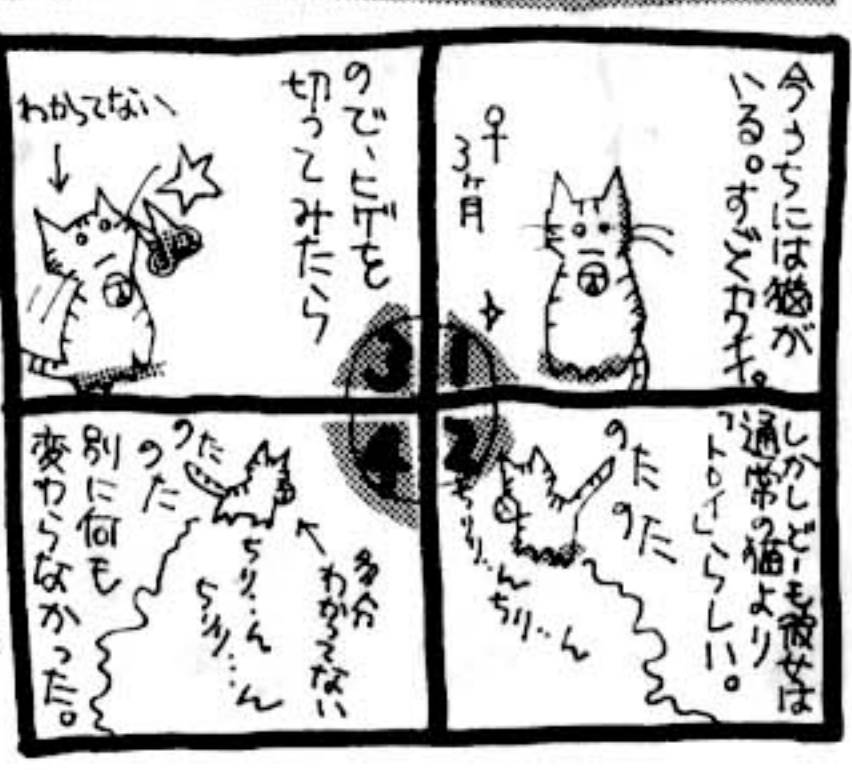 今うちには猫が
いる。すごくカワイイ。
♀
3ヶ月
1
しかしどーも彼女は
通常の猫より
「トロイ」らしい。
のた
のた
ちりり…ん
ちり…ん
2
ので、ヒゲを
切ってみたら
わかってない
3
多分
わかってない
のた
のた
ちり…ん
ちりり…ん
別に何も
変わらなかった。
4